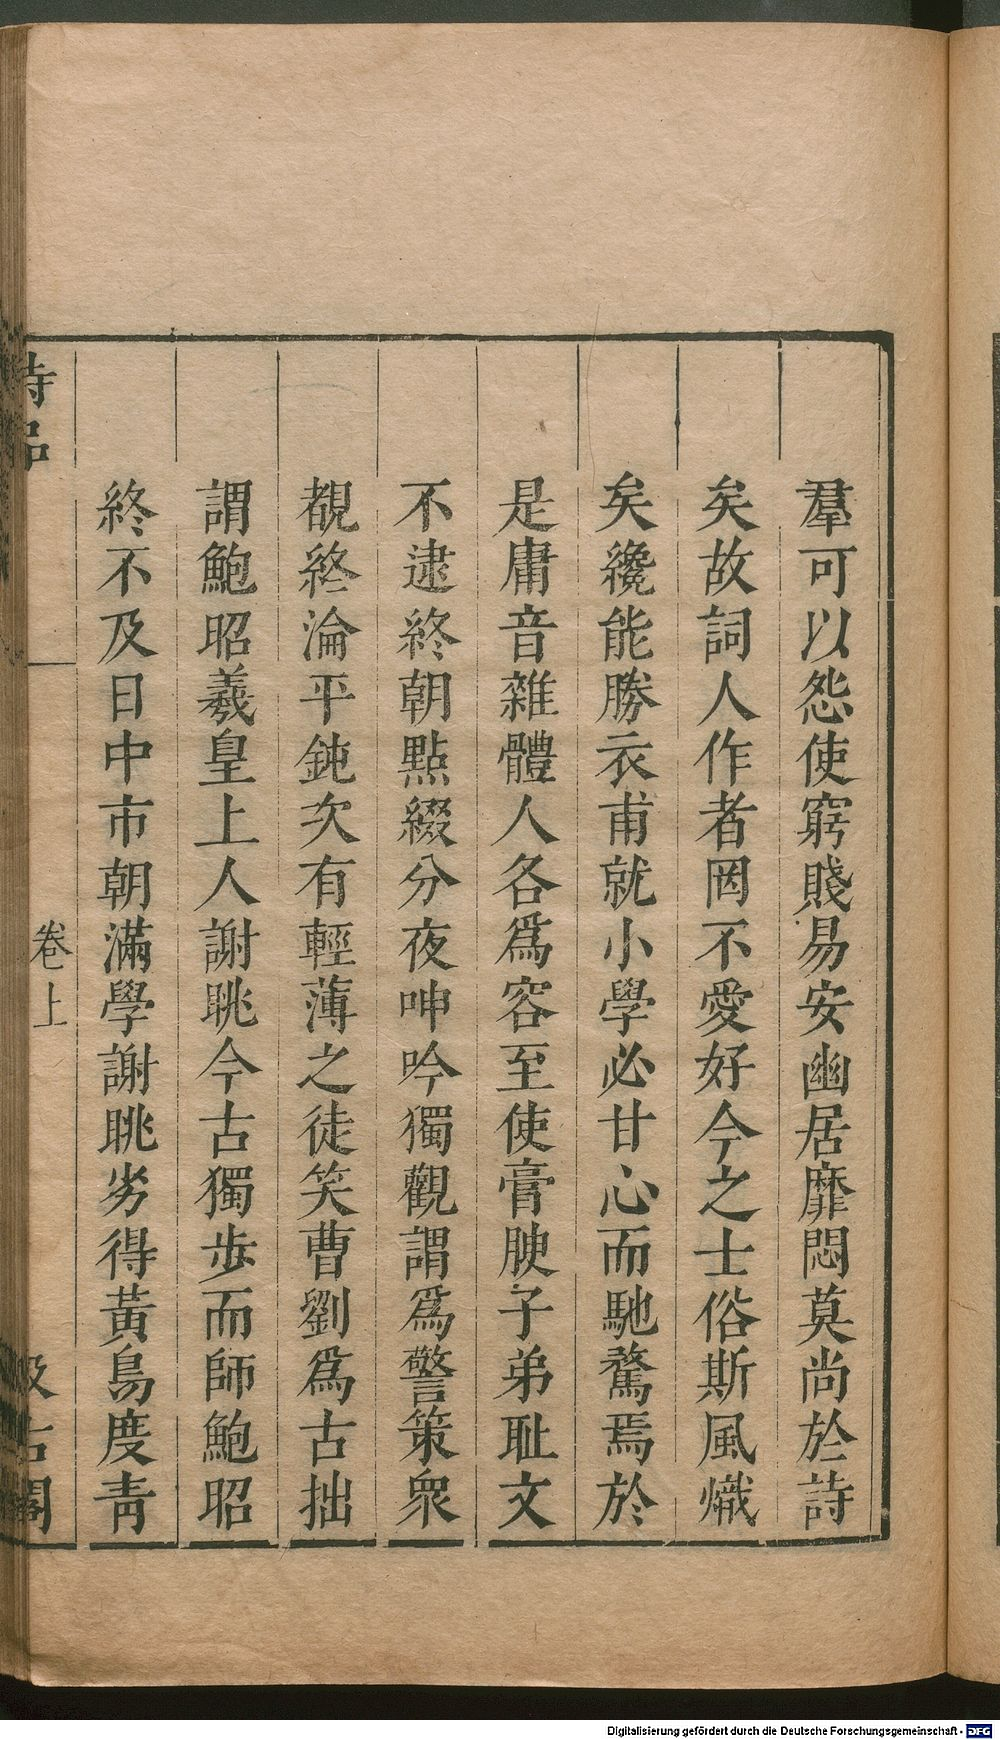 羣可以怨使窮賤易安幽居靡悶莫尚於詩
矣故詞人作者罔不愛好今之士俗斯風熾
矣纔能勝衣甫就小學必甘心而馳騖焉於
是庸音雜體人各爲容至使膏腴子弟耻文
不逮終朝點綴分夜呻吟獨觀謂爲警策衆
覩終淪平鈍次有輕薄之徒笑曹劉爲古拙
謂鮑昭羲皇上人謝眺今古獨步而師鮑昭
終不及日中市朝滿學謝眺劣得黃鳥度青
詩品
卷上
汲古閣
Digitalisierung gefördert durch die Deutsche Forschungsgemeinschaft - DFG